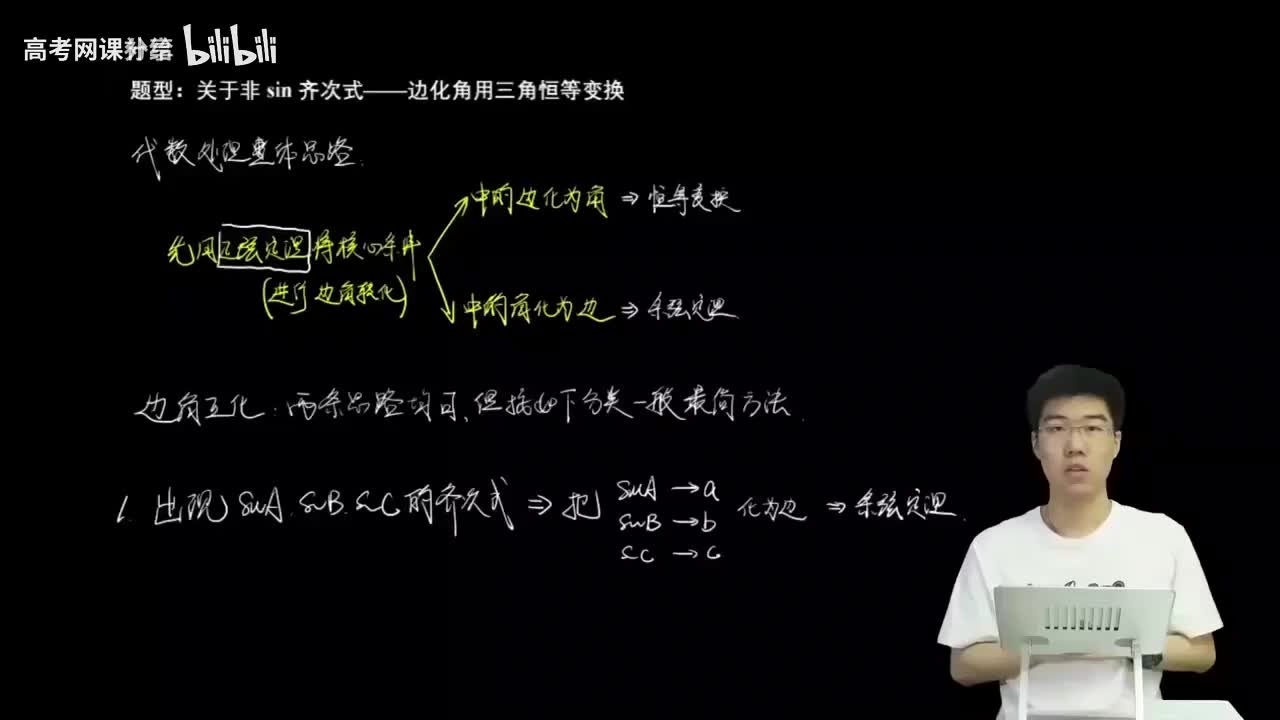 高考网课补给 bilibili
题型：关于非 sin 齐次式——边化角用三角恒等变换
代数处理整体思路.
中的边化为角 ⇒ 恒等变换
先用正弦定理将核心条件
(进行边角转化)
中的角化为边 ⇒ 余弦定理
边角互化：两条思路均可，但按如下分类一般最简方法.
1. 出现 sinA. sinB. sinC 的齐次式 ⇒ 把 sinA → a
sinB → b 化为边 ⇒ 余弦定理.
sinC → c